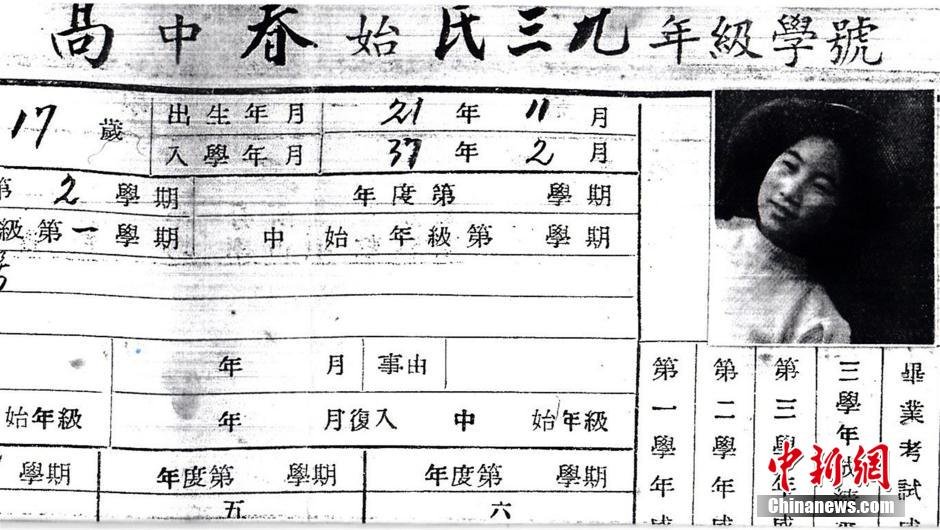 高中春始民三九年級學號
17 歲 出生年月 21年11月
入學年月 37年2月
第2學期 年度第 學期
級第一學期 中 始 年級第 學期
年 月 事由
始年級 年 月復入 中 始年級
學期 年度第 學期 年度第 學期
五 六
第一學年成
第二學年成
第三學年成
三學年成績
畢業考試成
中新網
Chinanews.com